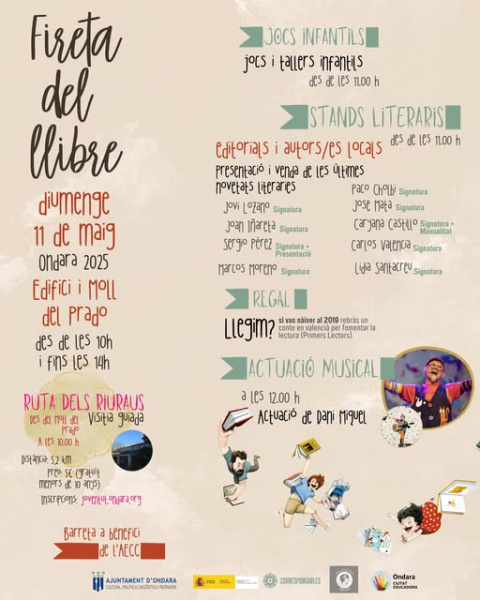 Fireta
del
llibre
diumenge
11 de maig
Ondara 2025
Edifici i Moll
del Prado
des de les 10h
i fins les 14h
RUTA DELS RIURAUS
Des del Moll del
Prado
A les 10.00 h
Visitia guiada
Distància: 5,2 km
Preu: 5€ (gratuït
menors de 10 anys)
Inscripcions: joventut.ondara.org
Barreta a benefici
de l'AECC
JOCS INFANTILS
jocs i tallers infantils
des de les 11.00 h
STANDS LITERARIS
des de les 11.00 h
editorials i autors/es locals
presentació i venda de les últimes
novetats literàries
Jovi Lozano Signatura
Joan Iñareta Signatura
Sergio Pérez Signatura +
Presentació
Marcos Moreno Signatura
Paco Cholbi Signatura
José Mata Signatura
Caryana Castillo Signatura +
Manualitat
Carlos Valencia Signatura
Lidia Santacreu Signatura
REGAL
Llegim? si vas nàixer al 2019 rebràs un
conte en valencià per fomentar la
lectura (Primers Lectors).
ACTUACIÓ MUSICAL
a les 12.00 h
Actuació de Dani Miquel
AJUNTAMENT D'ONDARA
CULTURA, POLÍTICA LINGÜÍSTICA I PATRIMONI
CORRESPONSABLES
Ondara
CIUTAT
EDUCADORA